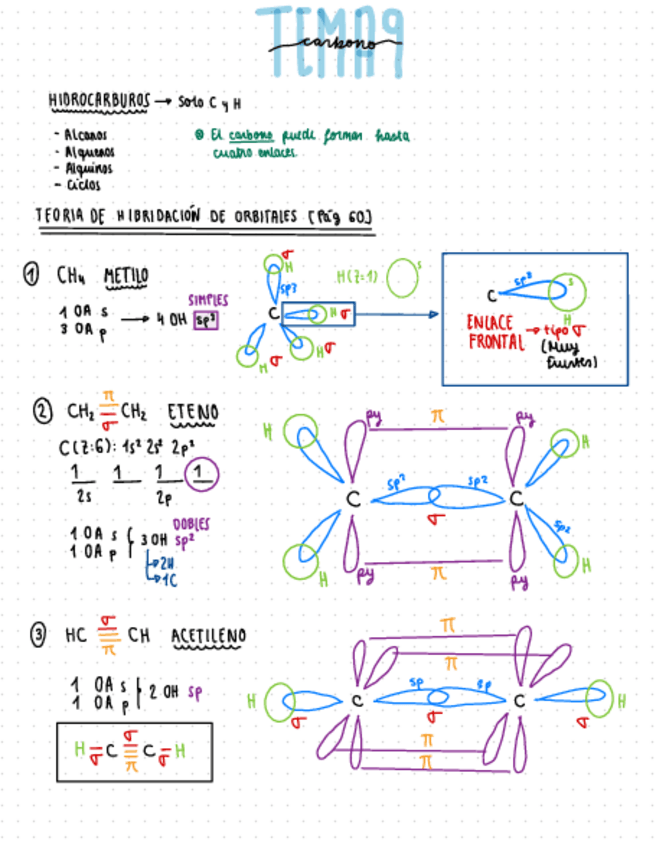 TEMA 9
carbono
HIDROCARBUROS → Solo C y H
- Alcanos
- Alquenos
- Alquinos
- Ciclos
⊗ El carbono puede formar hasta
cuatro enlaces.
TEORIA DE HIBRIDACIÓN DE ORBITALES [Pág 60]
① CH₄ METILO
1 OA s
3 OA p → 4 OH sp³
SIMPLES
σ
H
sp³
C
H σ
H σ
H σ
H(Z=1) s
C sp³ s
H
ENLACE
FRONTAL → tipo σ
(Muy
fuertes)
② CH₂ π σ CH₂ ETENO
C(Z:6): 1s² 2s² 2p²
1 1 1 1
2s 2p
1 OA s
1 OA p } 3 OH sp²
DOBLES
↳ 2H
↳ 1C
H py π py H
C sp² sp² C
σ
sp²
H py π py H
③ HC σ π CH ACETILENO
1 OA s
1 OA p } 2 OH sp
H σ C σ π C σ H
π
π
H σ C sp σ sp C σ H
π
π